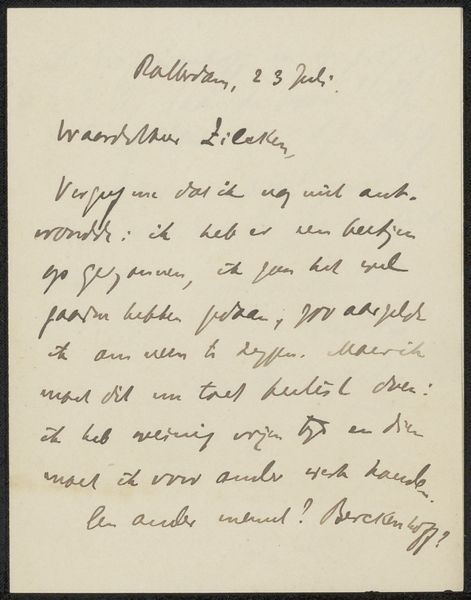 Rotterdam, 23 Juli.
Waarde Heer Zilcken,
Vergeef me dat ik nog niet ant-
woordde: ik heb er een beetjen
op gezonnen, ik zou het wel
gaarne hebben gedaan, zoo aarzelde
ik om neen te zeggen. Maar ik
moet dit nu toch beslist doen:
ik heb weinig vrijen tijd en dien
moet ik voor ander werk houden.
Een ander memt? Berckenhoff?